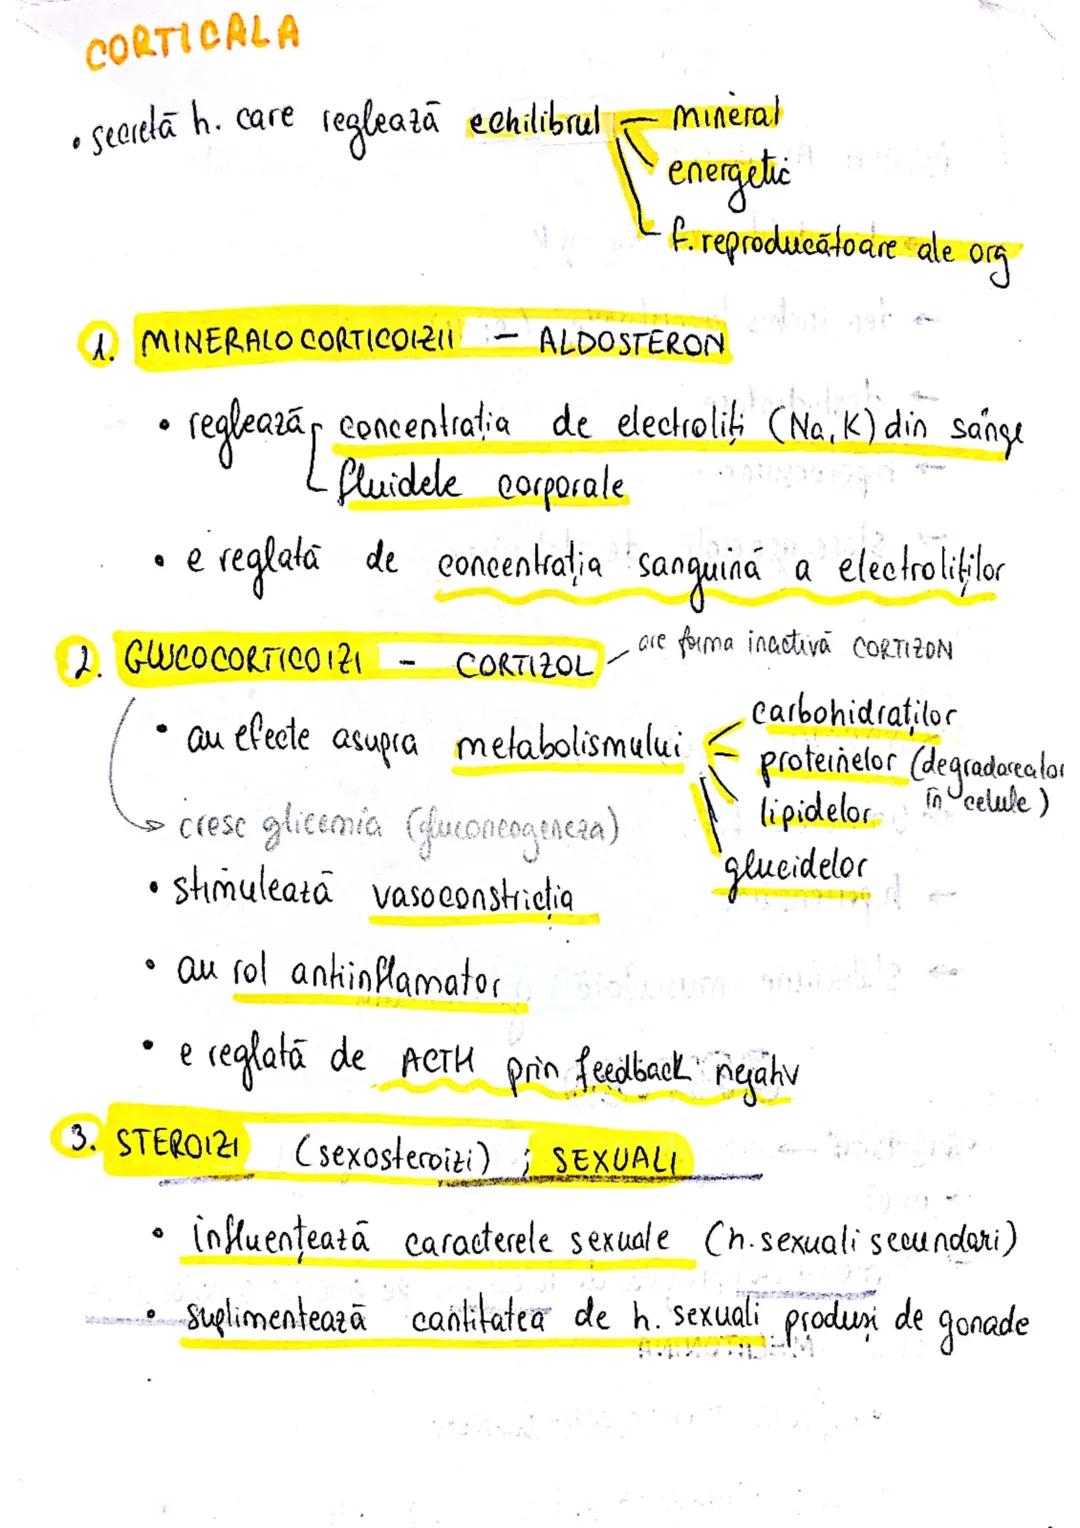 CORTICALA
• secretă h. care reglează echilibrul — mineral
energetic
f. reproducătoare ale org
1. MINERALOCORTICOIZII – ALDOSTERON
• reglează concentrația de electroliți (Na, K) din sânge
fluidele corporale
• e reglată de concentrația sanguină a electroliților
2. GLUCOCORTICOIZI – CORTIZOL — are forma inactivă CORTIZON
• au efecte asupra metabolismului carbohidraților
proteinelor (degradarea lor în celule)
lipidelor
glucidelor
→ cresc glicemia (gluconeogeneza)
• stimulează vasoconstricția
• au rol antiinflamator
• e reglată de ACTH prin feedback negativ
3. STEROIZI (sexosteroizi) ; SEXUALI
• influențează caracterele sexuale (h. sexuali secundari)
• suplimentează cantitatea de h. sexuali produși de gonade